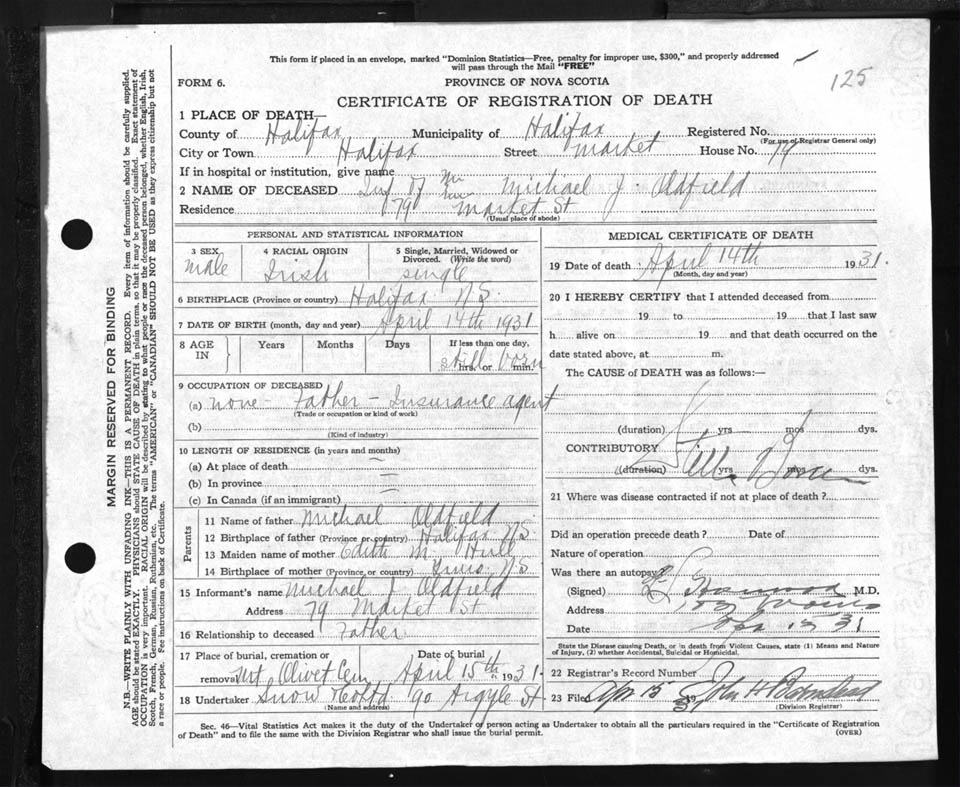 This form if placed in an envelope, marked "Dominion Statistics—Free, penalty for improper use, $300," and properly addressed
will pass through the Mail "FREE"
125
FORM 6.
PROVINCE OF NOVA SCOTIA
CERTIFICATE OF REGISTRATION OF DEATH
1 PLACE OF DEATH—
County of Halifax Municipality of Halifax Registered No.
(For use of Registrar General only)
City or Town Halifax Street Market House No. 79
If in hospital or institution, give name
2 NAME OF DECEASED Inf of Mr Michael J. Oldfield
Residence 79 Market St
(Usual place of abode)
PERSONAL AND STATISTICAL INFORMATION
3 SEX
male
4 RACIAL ORIGIN
Irish
5 Single, Married, Widowed or Divorced. (Write the word)
single
6 BIRTHPLACE (Province or country) Halifax N.S.
7 DATE OF BIRTH (month, day and year) April 14th 1931
8 AGE IN
Years Months Days If less than one day,
hrs. or min.
still born
9 OCCUPATION OF DECEASED
(a) none - Father - Insurance agent
(Trade or occupation or kind of work)
(b)
(Kind of industry)
10 LENGTH OF RESIDENCE (in years and months)
(a) At place of death
(b) In province
(c) In Canada (if an immigrant)
Parents
11 Name of father Michael Oldfield
12 Birthplace of father (Province or country) Halifax N.S.
13 Maiden name of mother Edith M. Hull
14 Birthplace of mother (Province or country) N.S.
15 Informant's name Michael J Oldfield
Address 79 Market St
16 Relationship to deceased Father
17 Place of burial, cremation or removal Mt Olivet Cem
Date of burial April 15th 1931.
18 Undertaker Snow & Co Ltd 90 Argyle St
(Name and address)
MEDICAL CERTIFICATE OF DEATH
19 Date of death April 14th 1931.
(Month, day and year)
20 I HEREBY CERTIFY that I attended deceased from
19 to 19 that I last saw
h alive on 19 and that death occurred on the
date stated above, at m.
The CAUSE of DEATH was as follows:—
(duration) yrs mos dys.
CONTRIBUTORY
Still Born
(duration) yrs mos dys.
21 Where was disease contracted if not at place of death?
Did an operation precede death? Date of
Nature of operation
Was there an autopsy
(Signed) M.D.
Address
Date 31
State the Disease causing Death, or in death from Violent Causes, state (1) Means and Nature of Injury, (2) whether Accidental, Suicidal or Homicidal.
22 Registrar's Record Number
23 Filed Apr 15 1931 John H
(Division Registrar)
Sec. 46—Vital Statistics Act makes it the duty of the Undertaker or person acting as Undertaker to obtain all the particulars required in the "Certificate of Registration
of Death" and to file the same with the Division Registrar who shall issue the burial permit.
(OVER)
MARGIN RESERVED FOR BINDING
N.B.—WRITE PLAINLY WITH UNFADING INK—THIS IS A PERMANENT RECORD. Every item of information should be carefully supplied.
AGE should be stated EXACTLY. PHYSICIANS should STATE CAUSE OF DEATH in plain terms, so that it may be properly classified. Exact statement of
OCCUPATION is very important. RACIAL ORIGIN will be described by stating to what people or race the deceased person belonged, whether English, Irish,
Scotch, French, German, Russian, Ruthenian, etc. The terms "AMERICAN" or "CANADIAN" SHOULD NOT BE USED as they express citizenship but not
a race or people. See instructions on back of Certificate.